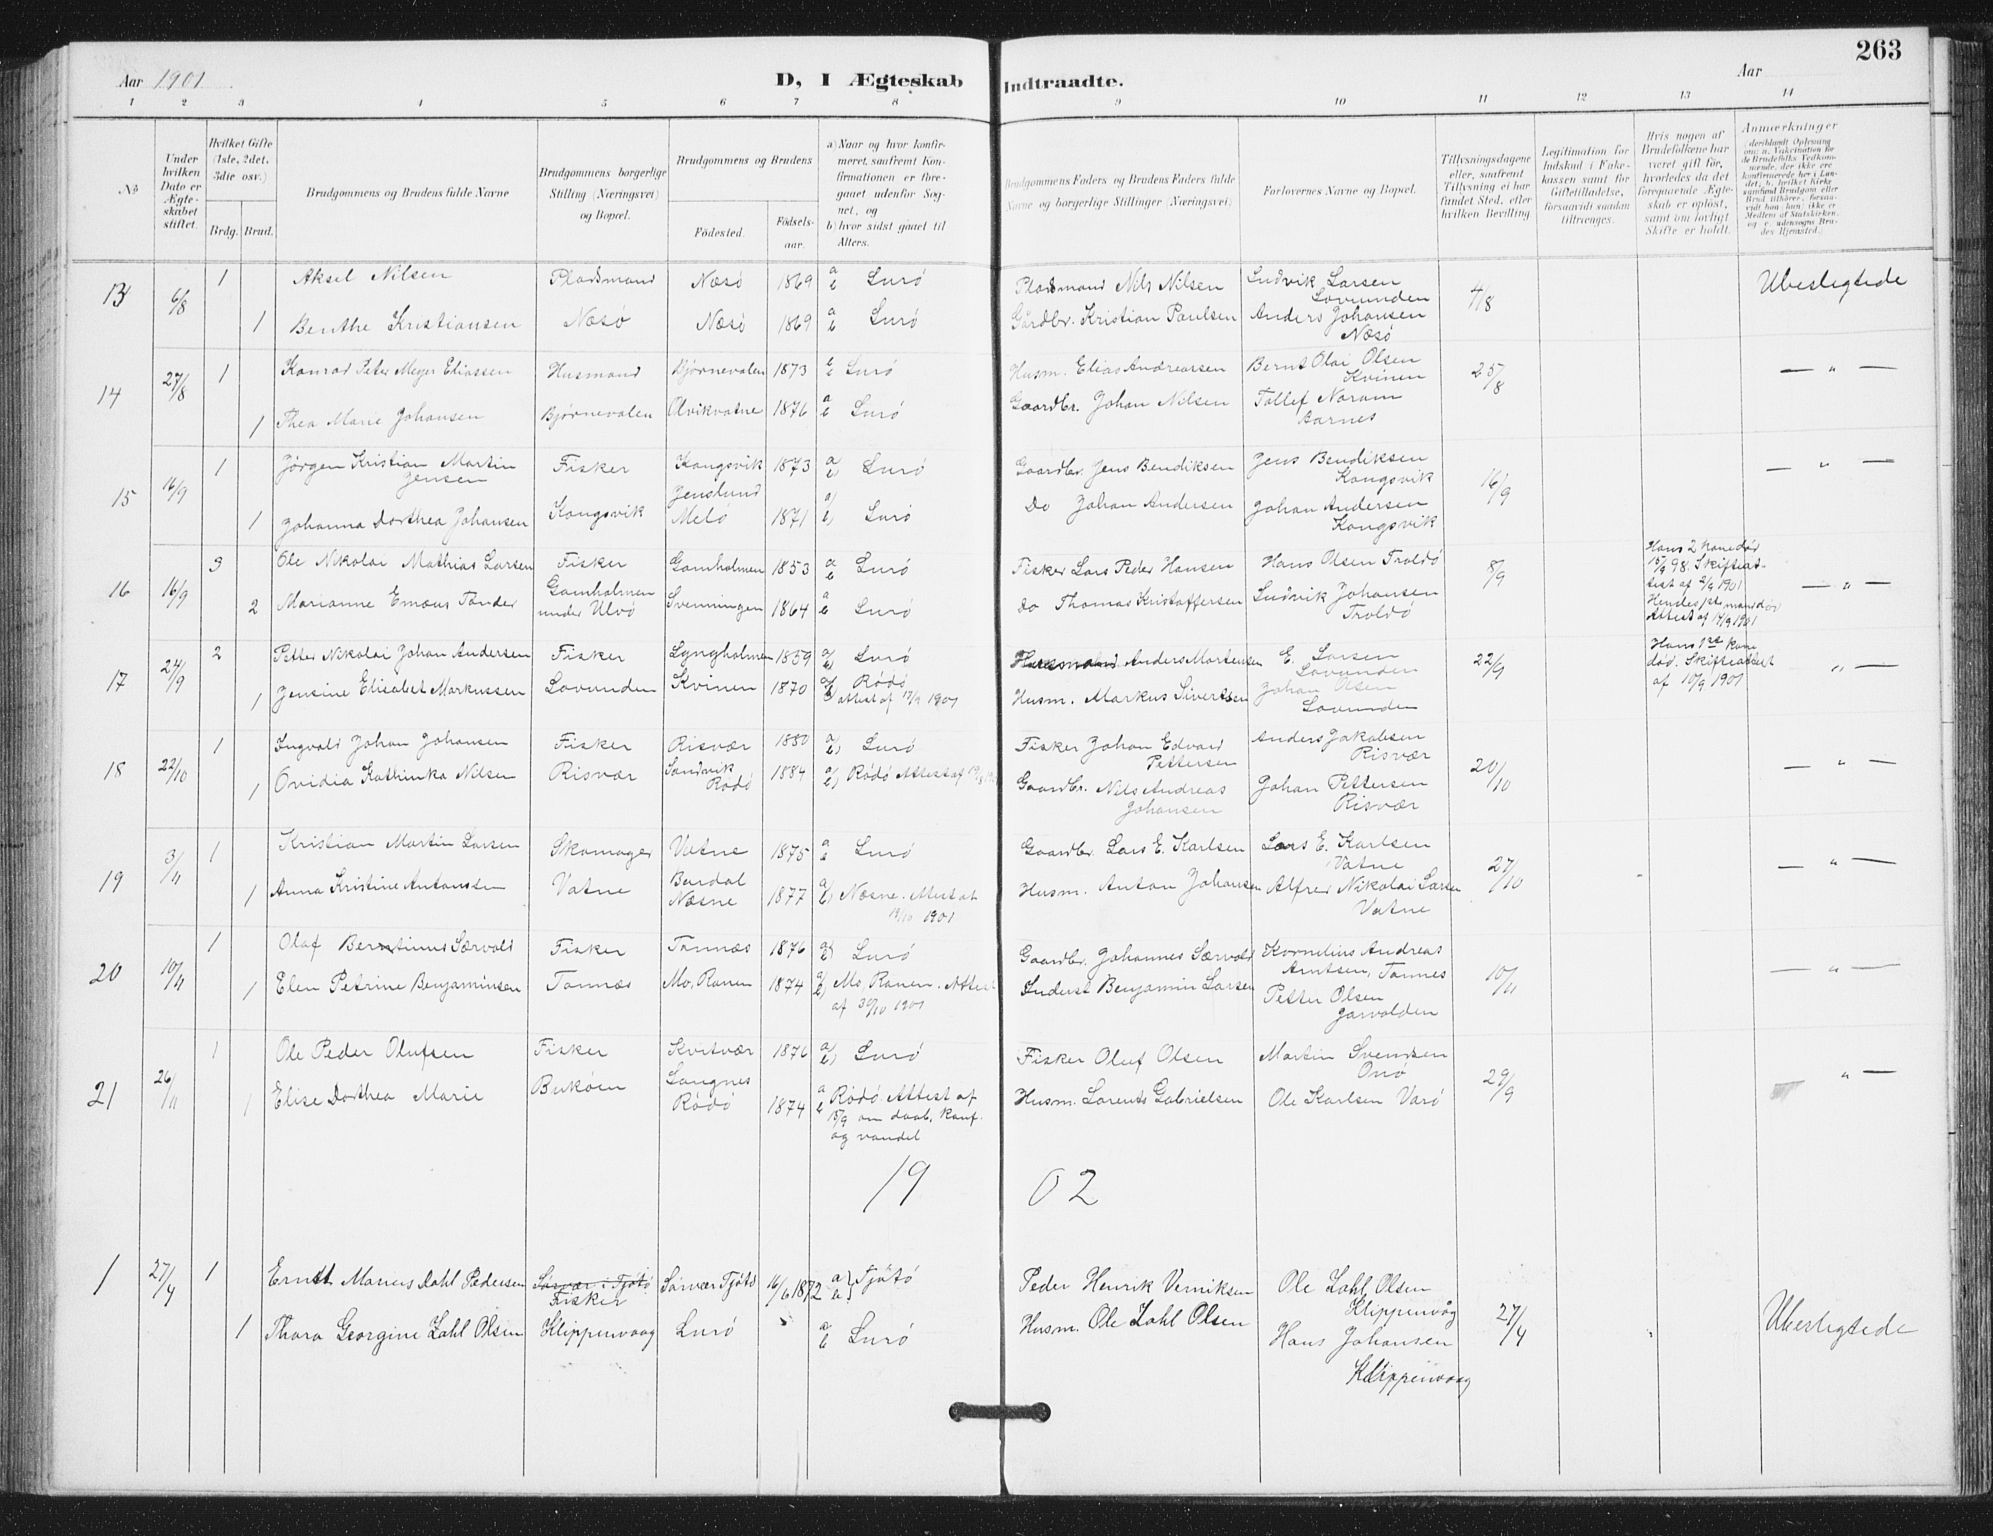 263
Aar 1901
D, I Ægteskab Indtraadte.
Aar
1 2 3 4 5 6 7 8 9 10 11 12 13 14
No
Under hvilken Dato er Ægteskabet stiftet.
Hvilket Gifte (1ste, 2det, 3die osv.)
Brdg. Brud.
Brudgommens og Brudens fulde Navne
Brudgommens borgerlige Stilling (Næringsvei) og Bopæl.
Brudgommens og Brudens
Fødested. Fødselsaar.
a) Naar og hvor konfirmeret, saafremt Konfirmationen er foregaaet udenfor Sognet, og
b) hvor sidst gaaet til Alters.
Brudgommens Faders og Brudens Faders fulde Navne og borgerlige Stillinger (Næringsvei)
Forlovernes Navne og Bopæl.
Tillysningsdagene eller, saafremt Tillysning ei har fundet Sted, efter hvilken Bevilling
Legitimation for Indskud i Enkekassen samt for Giftetilladelse, forsaavidt saadan tiltrænges.
Hvis nogen af Brudefolkene har været gift før, hvorledes da det foregaaende Ægteskab er opløst, samt om lovligt Skifte er holdt.
Anmærkninger
13 6/8 1 Aksel Nilsen Pladsmand Næsø 1869 a b Lurø Pladsmand Nils Nilsen Ludvik Larsen Lovunden 4/8 Ubeslegtede
1 Benthe Kristiansen Næsø Næsø 1869 a b Lurø Gårdbr. Kristian Paulsen Anders Johansen Næsø
14 27/8 1 Konrad Peter Meyer Eliassen Husmand Bjørnevalen 1873 Lurø Husm. Elias Andreassen Bernt Olai Olsen Kvinen 25/8 — " —
1 Thea Marie Johansen Bjørnevalen Olvikvatne 1876 a b Lurø Gaardbr. Johan Nilsen Tollef Aarnes
15 16/9 1 Jørgen Kristian Martin Jensen Fisker Kongsvik 1873 a b Lurø Gaardbr. Jens Bendiksen Jens Bendiksen Kongsvik 16/9 — " —
1 Johanna Dorthea Johansen Kongsvik Jenslund Melø 1871 a) b) Lurø Do Johan Andersen Johan Andersen Kongsvik
16 16/9 3 Ole Nikolai Mathias Larsen Fisker Gamholmen 1853 a b Lurø Fisker Lars Peder Hansen Hans Olsen Troldø 8/9 Hans 2 kone død 15/9 98. Skifteattest af 2/9 1901 — " —
2 Marianne Emæus Tønder Gamholmen under Ulvø Svenningen 1864 a b Lurø do Thomas Kristoffersen Ludvik Johansen Troldø Hendes 1ste mand død Attest af 14/9 1901
17 24/9 2 Petter Nikolai Johan Andersen Fisker Lyngholmen 1859 a/b) Lurø Husmand Anders Mortensen E. Larsen Lovunden 22/9 Hans 1ste kone død. Skifteattest af 10/9 1901 " —
1 Jensine Elisabet Markussen Lovunden Kvinen 1870 a) b) Rødø attest af 17/9 1901 Husm. Markus Sivertsen Johan Olsen Lovunden
18 22/10 1 Ingvald Johan Johansen Fisker Risvær 1880 a/b) Lurø Fisker Johan Edvard Pettersen Anders Jakobsen Risvær 20/10 — " —
1 Ovidia Kathinka Nilsen Risvær Sandvik Rødø 1884 a/b) Rødø Attest af Gaardbr. Nils Andreas Johansen Johan Pettersen Risvær
19 3/11 1 Kristian Martin Larsen Skomager Vatne 1875 a b Lurø Gaardbr. Lars E. Karlsen Lars E. Karlsen Vatne 27/10 — " —
1 Anna Kristine Antonsen Vatne Bardal Næsne 1877 a/b) Næsne. Attest af 19/10 1901 Husm. Anton Johansen Alfred Nikolai Larsen Vatne
20 10/11 1 Olaf Berntinus Særvold Fisker Tonnæs 1876 a b Lurø Gaardbr. Johannes Særvold Kornelius Andreas Arntsen, Tonnes 10/11 — " —
1 Elen Petrine Benjaminsen Tonnæs Mo, Ranen 1874 a/b) Mo, Ranen. Attest af 30/10 1901 Inderst Benjamin Larsen Petter Olsen Garvolden
21 26/11 1 Ole Peder Olufsen Fisker Kvitvær 1876 a/b) Lurø Fisker Oluf Olsen Martin Svendsen Onø 29/9 " —
1 Elise Dorthea Marie Bukøen Langnes Rødø 1874 a b Rødø Attest af 15/9 om daab, konf. og vandel Husm. Lorents Gabrielsen Ole Karlsen Varø
19 02
1 27/4 1 Ernst Marius Dahl Pedersen Sørvær i Tjøtø Fisker Sørvær Tjøtø 16/6 1872 a b} Tjøtø Peder Henrik Verniksen Ole Zahl Olsen Klippenvåg 27/4 Ubeslegtede
1 Thora Georgine Zahl Olsen Klippenvaag Lurø a b Lurø Husm. Ole Zahl Olsen Hans Johansen Klippenvaag